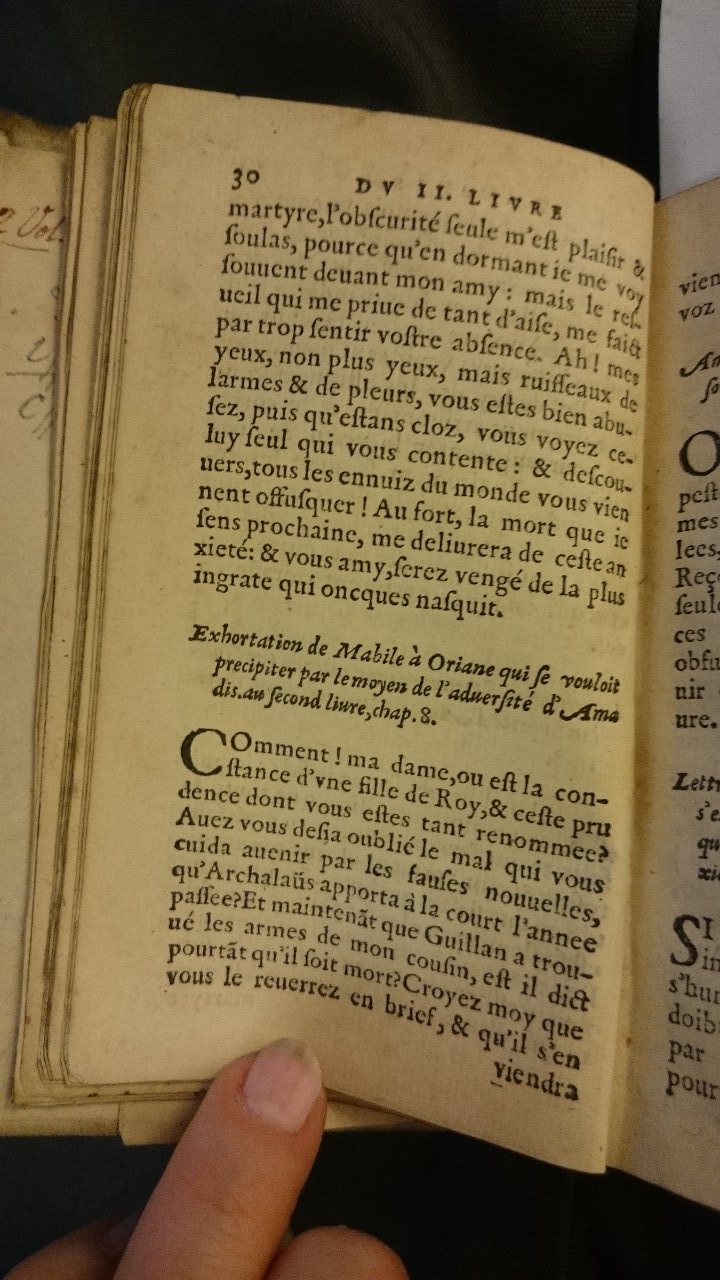 30 DV II. LIVRE
martyre,l'obſcurité ſeule m'eſt plaiſir &
ſoulas, pource qu'en dormant ie me voy
ſouuent deuant mon amy : mais le reſ-
ueil qui me priue de tant d'aiſe, me faict
par trop ſentir voſtre abſence. Ah ! mes
yeux, non plus yeux, mais ruiſſeaux de
larmes & de pleurs, vous eſtes bien abu-
ſez, puis qu'eſtans cloz, vous voyez ce-
luy ſeul qui vous contente : & deſcou-
uers,tous les ennuiz du monde vous vien
nent offuſquer ! Au fort, la mort que ie
ſens prochaine, me deliurera de ceſte an
xieté: & vous amy,ſerez vengé de la plus
ingrate qui oncques naſquit.
Exhortation de Mabile à Oriane qui ſe vouloit
precipiter par le moyen de l'aduerſité d'Ama
dis.au ſecond liure,chap.8.
COmment ! ma dame,ou eſt la con-
ſtance d'vne fille de Roy,& ceſte pru
dence dont vous eſtes tant renommee?
Auez vous deſia oublié le mal qui vous
cuida auenir par les fauſes nouuelles,
qu'Archalaüs apporta à la court l'annee
paſſee?Et maintenãt que Guillan a trou-
ué les armes de mon couſin, eſt il dict
pourtãt qu'il ſoit mort?Croyez moy que
vous le reuerrez en brief, & qu'il s'en
viendra
2 Vol.
vien
voz
peſt
mes
lees,
Reç
ſeul
ces
obfu
nir
ure.
Lettr
s'e
qu
xi
SI
ſin
s'hu
doib
par
pour